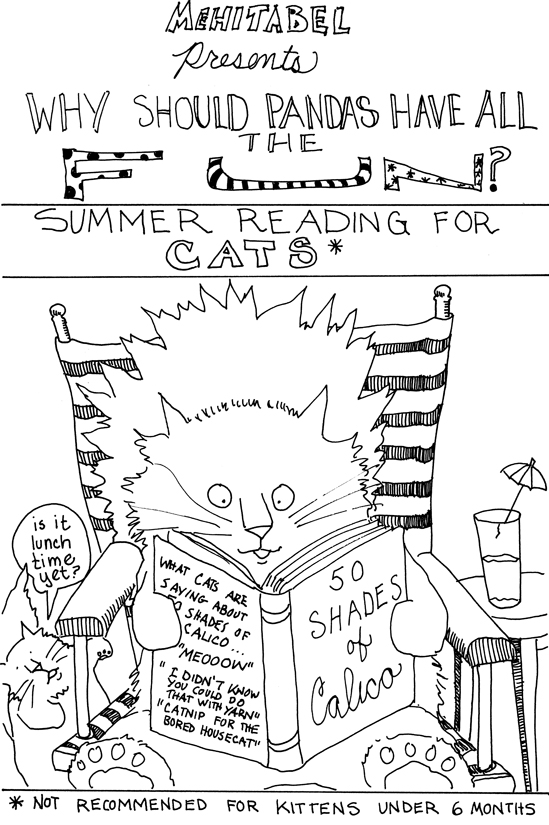 MEHITABEL
Presents
WHY SHOULD PANDAS HAVE ALL
THE
FUN?
SUMMER READING FOR
CATS*
is it
lunch
time
yet?
WHAT CATS ARE
SAYING ABOUT
50 SHADES OF
CALICO...
"MEOOOW"
"I DIDN'T KNOW
YOU COULD DO
THAT WITH YARN"
"CATNIP FOR THE
BORED HOUSECAT"
50
SHADES
of
Calico
* NOT RECOMMENDED FOR KITTENS UNDER 6 MONTHS